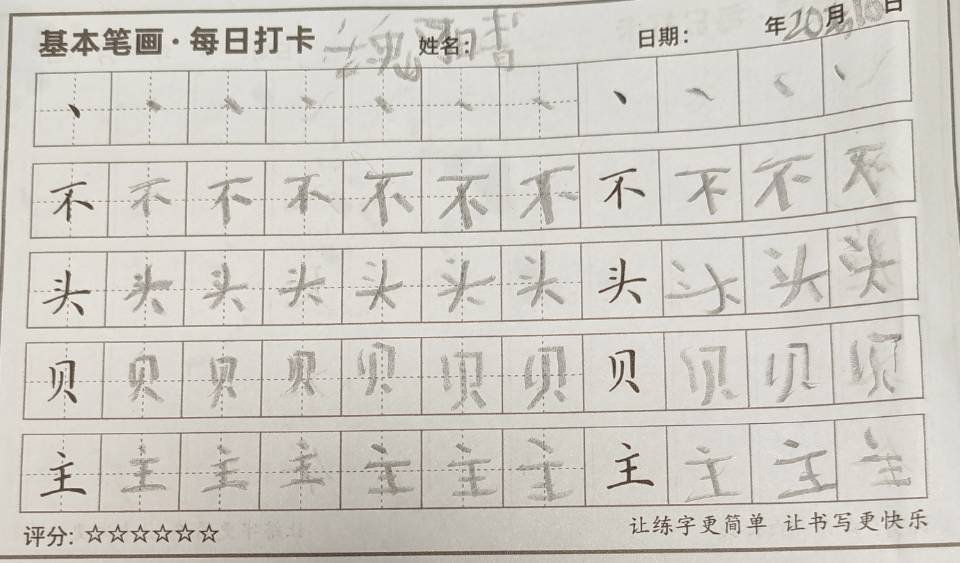 基本笔画·每日打卡 姓名： 日期： 年 月 日
丶 丶 丶 丶 丶 丶 丶 丶 丶 丶 丶
不 不 不 不 不 不 不 不 不 不 不
头 头 头 头 头 头 头 头 头 头 头
贝 贝 贝 贝 贝 贝 贝 贝 贝 贝 贝
主 主 主 主 主 主 主 主 主 主 主
评分: ☆☆☆☆☆☆ 让练字更简单 让书写更快乐